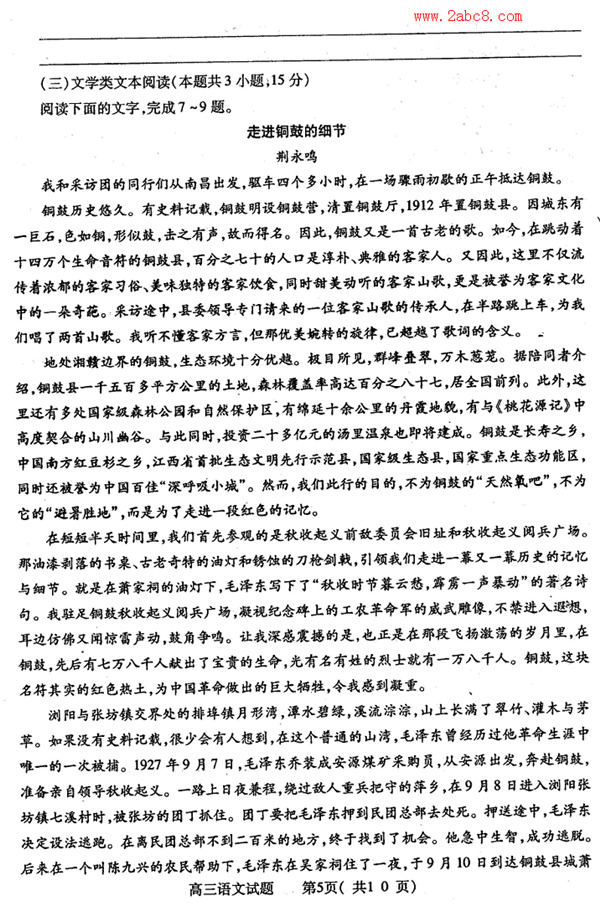 www.2abc8.com
(三)文学类文本阅读(本题共3小题,15分)
阅读下面的文字,完成7~9题。
走进铜鼓的细节
荆永鸣
我和采访团的同行们从南昌出发,驱车四个多小时,在一场骤雨初歇的正午抵达铜鼓。
铜鼓历史悠久。有史料记载,铜鼓明设铜鼓营,清置铜鼓厅,1912年置铜鼓县。因城东有
一巨石,色如铜,形似鼓,击之有声,故而得名。因此,铜鼓又是一首古老的歌。如今,在跳动着
十四万个生命音符的铜鼓县,百分之七十的人口是淳朴、典雅的客家人。又因此,这里不仅流
传着浓郁的客家习俗、美味独特的客家饮食,同时甜美动听的客家山歌,更是被誉为客家文化
中的一朵奇葩。采访途中,县委领导专门请来的一位客家山歌的传承人,在半路跳上车,为我
们唱了两首山歌。我听不懂客家方言,但那优美婉转的旋律,已超越了歌词的含义。
地处湘赣边界的铜鼓,生态环境十分优越。极目所见,群峰叠翠,万木葱茏。据陪同者介
绍,铜鼓县一千五百多平方公里的土地,森林覆盖率高达百分之八十七,居全国前列。此外,这
里还有多处国家级森林公园和自然保护区,有绵延十余公里的丹霞地貌,有与《桃花源记》中
高度契合的山川幽谷。与此同时,投资二十多亿元的汤里温泉也即将建成。铜鼓是长寿之乡,
中国南方红豆杉之乡,江西省首批生态文明先行示范县,国家级生态县,国家重点生态功能区,
同时还被誉为中国百佳“深呼吸小城”。然而,我们此行的目的,不为铜鼓的“天然氧吧”,不为
它的“避暑胜地”,而是为了走进一段红色的记忆。
在短短半天时间里,我们首先参观的是秋收起义前敌委员会旧址和秋收起义阅兵广场。
那油漆剥落的书桌、古老奇特的油灯和锈蚀的刀枪剑戟,引领我们走进一幕又一幕历史的记忆
与细节。就是在萧家祠的油灯下,毛泽东写下了“秋收时节暮云愁,霹雳一声暴动”的著名诗
句。我驻足铜鼓秋收起义阅兵广场,凝视纪念碑上的工农革命军的威武雕像,不禁进入遐想,
耳边仿佛又闻惊雷声动,鼓角争鸣。让我深感震撼的是,也正是在那段飞扬激荡的岁月里,在
铜鼓,先后有七万八千人献出了宝贵的生命,光有名有姓的烈士就有一万八千人。铜鼓,这块
名符其实的红色热土,为中国革命做出的巨大牺牲,令我感到凝重。
浏阳与张坊镇交界处的排埠镇月形湾,潭水碧绿,溪流淙淙,山上长满了翠竹、灌木与茅
草。如果没有史料记载,很少会有人想到,在这个普通的山湾,毛泽东曾经历过他革命生涯中
唯一的一次被捕。1927年9月7日,毛泽东乔装成安源煤矿采购员,从安源出发,奔赴铜鼓,
准备亲自领导秋收起义。一路上日夜兼程,绕过敌人重兵把守的萍乡,在9月8日进入浏阳张
坊镇七溪村时,被张坊的团丁抓住。团丁要把毛泽东押到民团总部去处死。押送途中,毛泽东
决定设法逃跑。在离民团总部不到二百米的地方,终于找到了机会。他急中生智,成功逃脱。
后来在一个叫陈九兴的农民帮助下,毛泽东在吴家祠住了一夜,于9月10日到达铜鼓县城萧
高三语文试题 第5页(共10页)